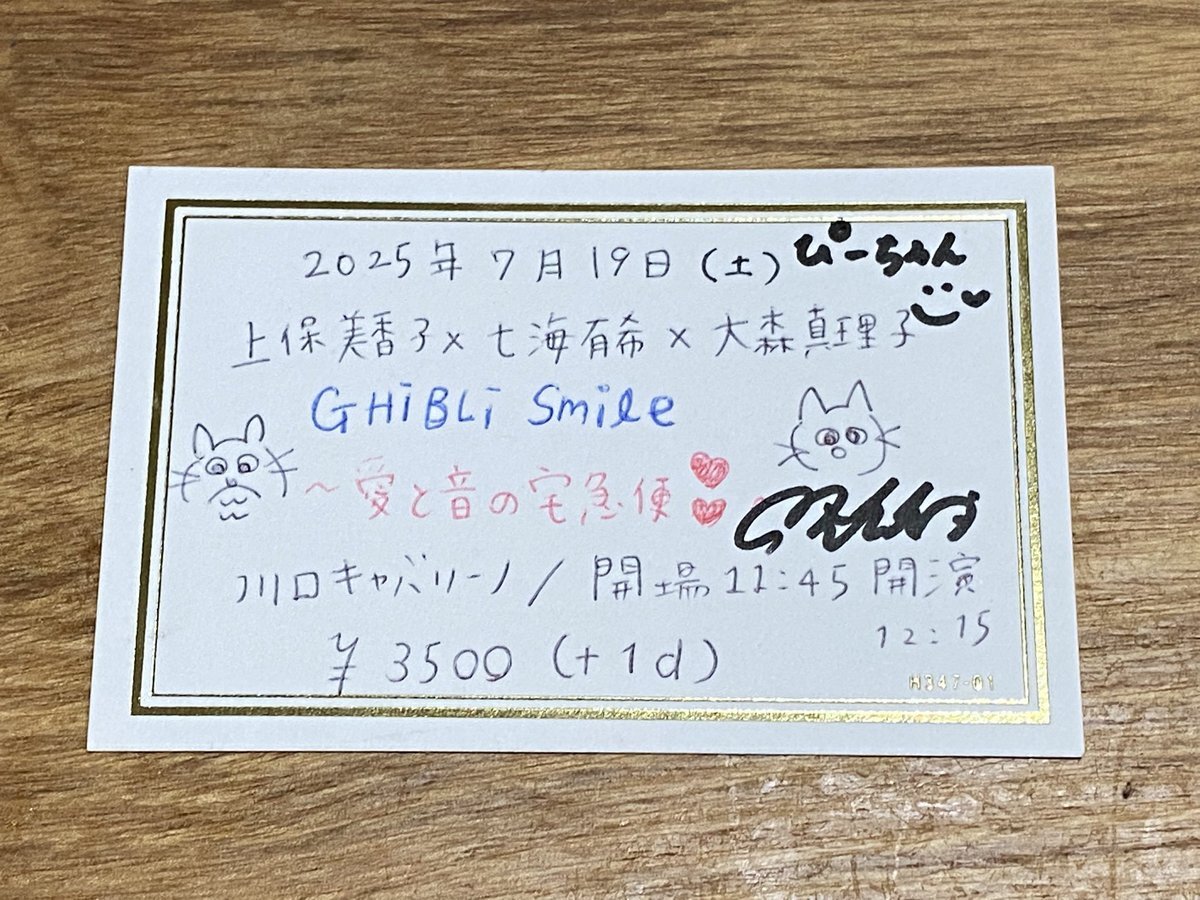 2025年 7月19日(土) ぴーちゃん
上保美香子×七海有希×大森真理子
GHiBLi Smile
～愛と音の宅急便
川口キャバリーノ/開場11:45 開演
12:15
¥3500(+1d)
H347-01